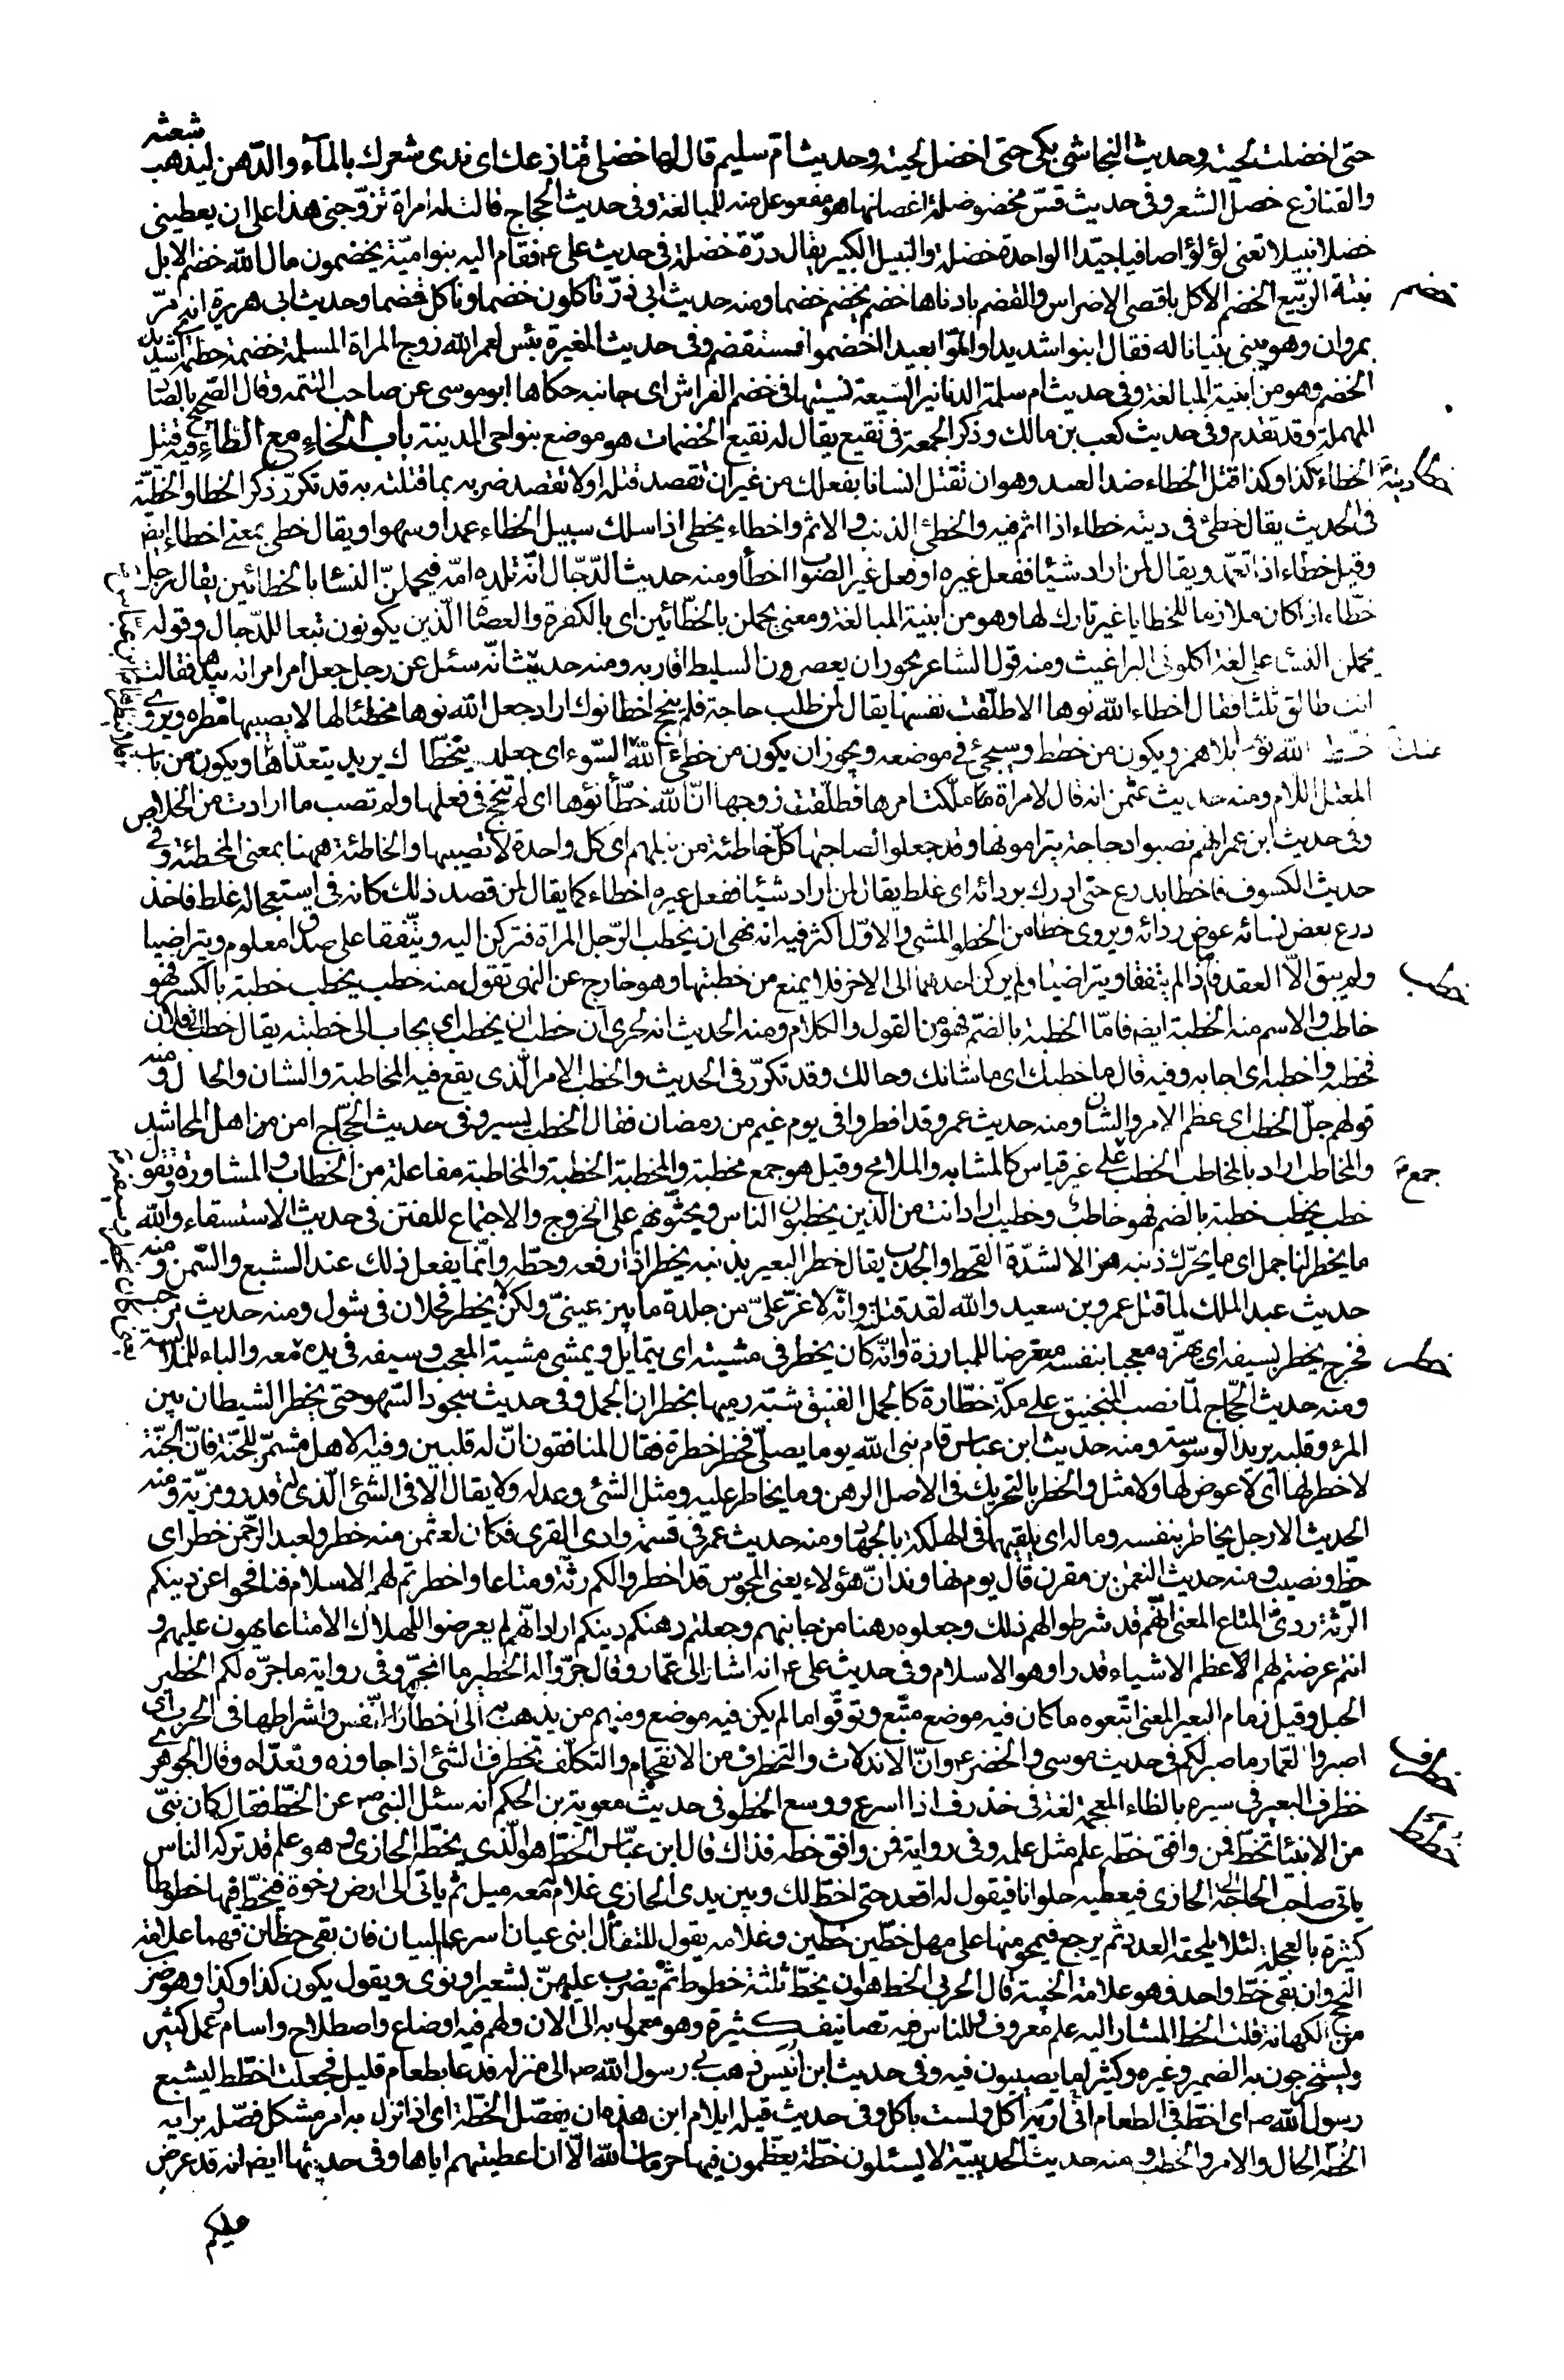 حتى اخضلت لحيته وحديث النجاشى بكى حتى اخضل لحيته وحديث ام سليم قال لها خضلى قنازعك اى ندى شعرك بالماء والدهن ليذهب شعثه
والقنازع خصل الشعر وفى حديث قس مخضوضلة اغصانها هو مفعوعلة منه للمبالغة وفى حديث الحجاج قالت له امراة تزوجنى هذا على ان يعطينى
خضلا نبيلا تعنى لؤلؤا صافيا جيدا الواحدة خضلة والنبيل الكبير يقال درة خضلة فى حديث على ع فقام اليه بنو امية يخضمون مال الله خضم الابل
خضم
نبتة الربيع الخضم الاكل باقصى الاضراس والقضم بادناها خضم يخضم خضما ومنه حديث ابى ذر تاكلون خضما وناكل قضما وحديث ابى هريرة انه مر
بمروان وهو يبنى بنيانا له فقال ابنوا شديدا واملوا بعيدا اخضموا فسنقضم وفى حديث المغيرة بئس لعمر الله زوج المراة المسلمة خضمة حطمة اى شديد
الخضم وهو من ابنية المبالغة وفى حديث ام سلمة الدنانير السبعة نسيتها فى خضم الفراش اى جانبه حكاها ابو موسى عن صاحب التتمة وقال الصحيح بالصاد
المهملة وقد تقدم وفى حديث كعب بن مالك وذكر الجمعة فى نقيع يقال له نقيع الخضمات هو موضع بنواحى المدينة باب الخاء مع الطاء فيه قتيل
خطا
الخطاء ديته كذا وكذا قتل الخطاء ضد العمد وهو ان تقتل انسانا بفعلك من غير ان تقصد قتله او لا تقصد ضربه بما قتلته به قد تكرر ذكر الخطا والخطيئة
فى الحديث يقال خطئ فى دينه خطاء اذا اثم فيه والخطئ الذنب والاثم واخطاء يخطى اذا سلك سبيل الخطاء عمدا وسهوا ويقال خطى بمعنى اخطاء ايضا
وقيل خطاء اذا تعمد ويقال لمن اراد شيئا ففعل غيره او فعل غير الصواب اخطأ ومنه حديث الدجال انه تلده امه فيحملن النساء بالخطائين يقال رجل
خطاء اذا كان ملازما للخطايا غير تارك لها وهو من ابنية المبالغة ومعنى يحملن بالخطائين اى بالكفرة والعصاة الذين يكونون تبعا للدجال وقوله
يحملن النساء على لغة اكلونى البراغيث ومنه قول الشاعر بحوران يعصرون السليط اقاربه ومنه حديث انه سئل عن رجل جعل امر امراته بيدها فقالت
انت طالق ثلثا فقال اخطاء الله نوها الا طلقت نفسها يقال لمن طلب حاجة فلم ينجح اخطا نوك اراد جعل الله نوها مخطئا لها لا يصيبها مطره ويروى
الله نوءها بلا همز ويكون من خطط وسيجئ فى موضعه ويجوز ان يكون من خطى الله عنك السوء اى جعله يتخطاك يريد يتعداها ويكون من باب
المعتل اللام ومنه حديث عثمن انه قال لامراة ملكت امرها فطلقت زوجها ان الله خطأ نؤها اى لم تنجح فى فعلها ولم تصب ما ارادت من الخلاص
وفى حديث ابن عمر انهم نصبوا دجاجة يترامونها وقد جعلوا لصاحبها كل خاطئة من نبلهم اى كل واحدة لا تصيبها والخاطئة ههنا بمعنى المخطئة وفى
حديث الكسوف فاخطا بدرع حتى ادرك بردائه اى غلط يقال لمن اراد شيئا ففعل غيره اخطاء كما يقال لمن قصد ذلك كانه فى استعجاله غلط فاخذ
درع بعض نسائه عوض ردائه ويروى خطا من الخطو المشى والاول اكثر فيه انه نهى ان يخطب الرجل المراة فتركن اليه ويتفقا على صداق معلوم ويتراضيا
خطب
ولم يبق الا العقد فاما اذا لم يتفقا ويتراضيا ولم يركن احدهما الى الاخر فلا يمنع من خطبتها وهو خارج عن النهى تقول منه خطب يخطب خطبة بالكسر فهو
خاطب والاسم منه الخطبة ايضا فاما الخطبة بالضم فهو من القول والكلام ومنه الحديث انه لحرى ان خطب ان يخطب اى يجاب الى خطبته يقال خطب الى فلان
فخطبه واخطبه اى اجابه وفيه قال ما خطبك اى ما شانك وحالك وقد تكرر فى الحديث والخطب الامر الذى يقع فيه المخاطبة والشان والحال ومنه
قولهم جل الخطب اى عظم الامر والشان ومنه حديث عمر وقد افطروا فى يوم غيم من رمضان فقال الخطب يسير وفى حديث الحجاج امن من اهل المحاشد
والمخاطب اراد بالمخاطب الخطب على غير قياس كالمشابه والملامح وقيل هو جمع مخطبة والمخطبة الخطبة والمخاطبة مفاعلة من الخطاب والمشاورة تقول
خطب يخطب خطبة بالضم فهو خاطب وخطيب اراد انت من الذين يخطبون الناس ويحثونهم على الخروج والاجتماع للفتن فى حديث الاستسقاء والله
ما يخطر لنا جمل اى ما يحرك ذنبه هزالا لشدة القحط والجدب يقال خطر البعير بذنبه يخطر اذا رفعه وحطه وانما يفعل ذلك عند الشبع والسمن ومنه
حديث عبد الملك لما قتل عمرو بن سعيد والله لقد قتلته وانه لاعز على من جلدة ما بين عينى ولكن لا يخطر فحلان فى شول ومنه حديث مرحب
خطر
فخرج يخطر بسيفه اى يهزه معجبا بنفسه متعرضا للمبارزة او انه كان يخطر فى مشيته اى يتمايل ويمشى مشية المعجب وسيفه فى يده معه والباء للملابسة
ومنه حديث الحجاج لما نصب المنجنيق على مكة خطارة كالجمل الفنيق شبه رميها بخطران الجمل وفى حديث سجود السهو حتى يخطر الشيطان بين
المرء وقلبه يريد الوسوسة ومنه حديث ابن عباس قام نبى الله يوما يصلى فخطر خطرة فقال المنافقون ان له قلبين وفيه الا هل مشمر للجنة فان الجنة
لا خطر لها اى لا عوض لها ولا مثل والخطر بالتحريك فى الاصل الرهن وما يخاطر عليه ومثل الشئ وعدله ولا يقال الا فى الشئ الذى له قدر ومزية ومنه
الحديث الا رجل يخاطر بنفسه وماله اى يلقيهما فى الهلكة بالجهاد ومنه حديث عمر فى قسمة وادى القرى فكان لعثمن منه خطر ولعبد الرحمن خطر اى
حظ ونصيب ومنه حديث النعمن بن مقرن قال يوم نهاوند ان هؤلاء يعنى المجوس قد اخطروا لكم رثة ومتاعا واخطرتم لهم الاسلام فنافحوا عن دينكم
الرثة ردئ المتاع المعنى انهم قد شرطوا لهم ذلك وجعلوه رهنا من جانبهم وجعلتم رهنكم دينكم اراد انهم لم يعرضوا للهلاك الا متاعا يهون عليهم و
انتم عرضتم لهم الاعظم الاشياء قدرا وهو الاسلام وفى حديث على ع انه اشار الى عمار وقال جروا له الخطير ما انجر وفى رواية ما جره لكم الخطير
الحبل وقيل زمام البعير المعنى اتبعوه ما كان فيه موضع متبع وتوقوا ما لم يكن فيه موضع ومنهم من يذهب به الى اخطار النفس واشراطها فى الحرب اى
خطرف
اصبروا لعمار ما صبر لكم فى حديث موسى والخضر ع وان الاندلاث والتخطرف من الانقحام والتكلف تخطرف الشئ اذا جاوزه وتعداه وقال الجوهرى
خظرف البعير فى سيره بالظاء المعجمة لغة فى خذرف اذا اسرع ووسع الخطو فى حديث معوية بن الحكم انه سئل النبى ص عن الخط فقال كان نبى
خطط
من الانبياء يخط فمن وافق خطه علم مثل علمه وفى رواية فمن وافق خطه فذاك قال ابن عباس الخط هو الذى يخطه الحازى وهو علم قد تركه الناس
ياتى صاحب الحاجة الى الحازى فيعطيه حلوانا فيقول له اقعد حتى اخط لك وبين يدى الحازى غلام له معه ميل ثم ياتى الى ارض رخوة فيخط فيها خطوطا
كثيرة بالعجلة لئلا يلحقه العدد ثم يرجع فيمحو منها على مهل خطين خطين وغلامه يقول للتفأل ابنى عيان اسرعا البيان فان بقى خطان فهما علامة
النجح وان بقى خط واحد فهو علامة الخيبة قال الحربى الخط هو ان يخط ثلثة خطوط ثم يضرب عليهن بشعير او نوى ويقول يكون كذا وكذا وهو ضرب
من الكهانة قلت الخط المشار اليه علم معروف وللناس فيه تصانيف كثيرة وهو معمول به الى الان ولهم فيه اوضاع واصطلاح واسام وعمل كثير
ويستخرجون به الضمير وغيره وكثيرا ما يصيبون فيه وفى حديث ابن انيس ذهب بى رسول الله ص الى منزله فدعا بطعام قليل فجعلت اخطط ليشبع
رسول الله ص اى اخط فى الطعام اى اريه انى اكل ولست باكل وفى حديث قيلة ايلام ابن هذه ان يفصل الخطة اى اذا نزل به امر مشكل فصله برايه
الخطة الحال والامر والخطب ومنه حديث الحديبية لا يسئلون خطة يعظمون فيها حرمات الله الا ان اعطيتهم اياها وفى حديثها ايضا انه قد عرض
عليكم